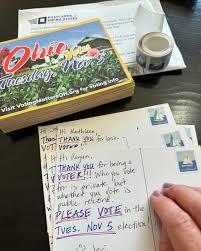 POSTCARDS TO
SWING STATES
Ohio
Tuesday, Nov 5
Visit VotingMattersOH.org for voting info
Hi Kathleen,
THANK YOU for being
Hi
THANK
VOT
Hi Raven,
THANK YOU for being a
VOTER!!! Who you vote
for is private, but
whether you vote is
public record.
PLEASE VOTE in the
TUES. NOV 5 election